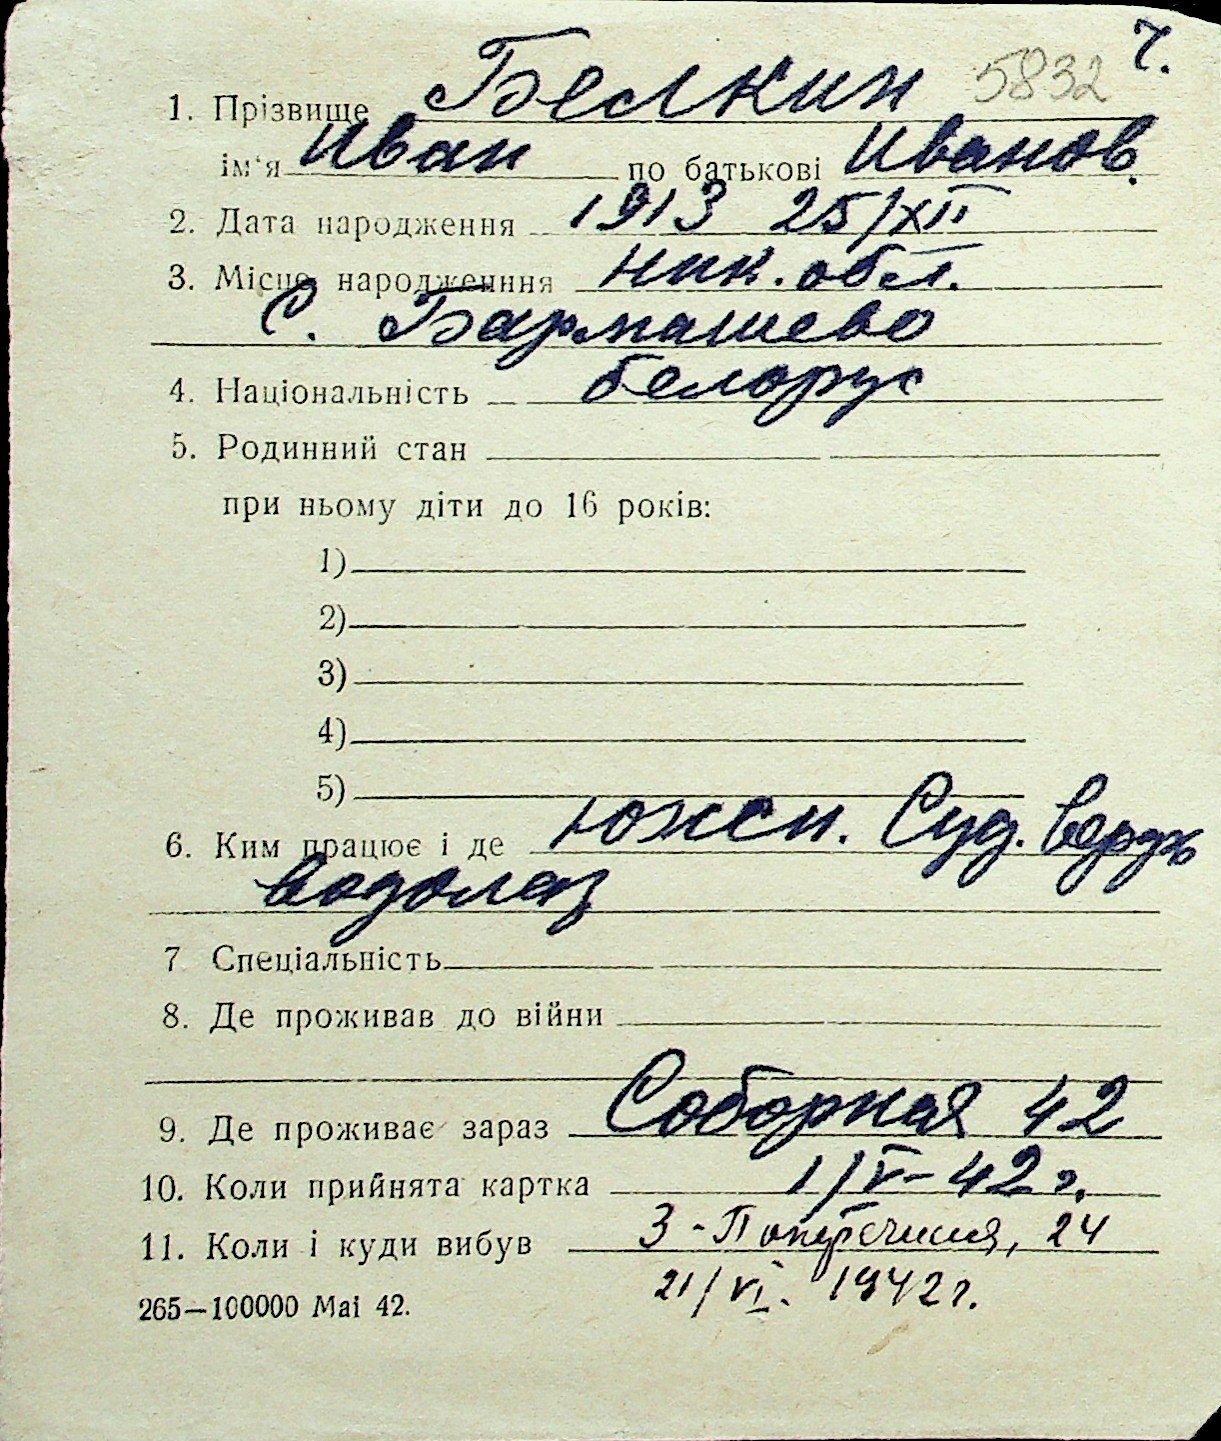 ч.
5832
1. Прізвище Белкин
ім'я Иван по батькові Иванов.
2. Дата народження 1913 25/XII
3. Місце народженння Ник. обл.
с. Бармашево
4. Національність белорус
5. Родинний стан
при ньому діти до 16 років:
1)
2)
3)
4)
5)
6. Ким працює і де Южн. Суд. Верфь
водолаз
7 Спеціальність
8. Де проживав до війни
9. Де проживає зараз Соборная 42
10. Коли прийнята картка 1/V-42 г.
11. Коли і куди вибув 3-Поперечная, 24
21/VI. 1942 г.
265—100000 Mai 42.